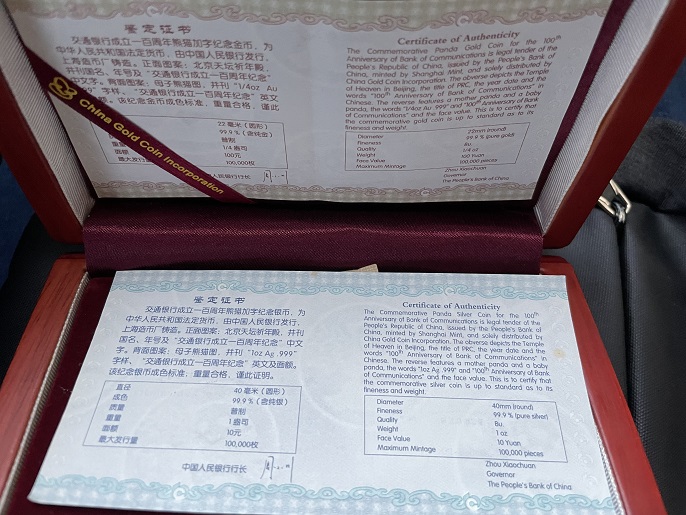 鉴定证书
交通银行成立一百周年熊猫加字纪念金币，为
中华人民共和国法定货币，由中国人民银行发行，
上海造币厂铸造。正面图案：北京天坛祈年殿，
并刊国名、年号及“交通银行成立一百周年纪念”
中文字。背面图案：母子熊猫图，并刊“1/4oz Au
字样、“交通银行成立一百周年纪念”英文
该纪念金币成色标准，重量合格，谨此
22毫米（圆形）
99.9%（含纯金）
普制
重量 1/4盎司
面额 100元
最大发行量 100,000枚
人民银行行长
China Gold Coin Incorporation
Certificate of Authenticity
The Commemorative Panda Gold Coin for the 100th
Anniversary of Bank of Communications is legal tender of the
People's Republic of China, issued by the People's Bank of
China, minted by Shanghai Mint, and solely distributed by
China Gold Coin Incorporation. The obverse depicts the Temple
of Heaven in Beijing, the title of PRC, the year date and the
words "100th Anniversary of Bank of Communications" in
Chinese. The reverse features a mother panda and a baby
panda, the words "1/4oz Au .999" and "100th Anniversary of Bank
of Communications" and the face value. This is to certify that
the commemorative gold coin is up to standard as to its
fineness and weight.
Diameter 22mm (round)
Fineness 99.9% (pure gold)
Quality Bu.
Weight 1/4 oz
Face Value 100 Yuan
Maximum Mintage 100,000 pieces
Zhou Xiaochuan
Governor
The People's Bank of China
鉴定证书
交通银行成立一百周年熊猫加字纪念银币，为
中华人民共和国法定货币，由中国人民银行发行，
上海造币厂铸造。正面图案：北京天坛祈年殿，并刊
国名、年号及“交通银行成立一百周年纪念”中文
字。背面图案：母子熊猫图，并刊“1oz Ag .999”
字样、“交通银行成立一百周年纪念”英文及面额。
该纪念银币成色标准，重量合格，谨此证明。
直径 40毫米（圆形）
成色 99.9%（含纯银）
质量 普制
重量 1盎司
面额 10元
最大发行量 100,000枚
中国人民银行行长
Certificate of Authenticity
The Commemorative Panda Silver Coin for the 100th
Anniversary of Bank of Communications is legal tender of the
People's Republic of China, issued by the People's Bank of
China, minted by Shanghai Mint, and solely distributed by
China Gold Coin Incorporation. The obverse depicts the Temple
of Heaven in Beijing, the title of PRC, the year date and the
words "100th Anniversary of Bank of Communications" in
Chinese. The reverse features a mother panda and a baby
panda, the words "1oz Ag .999" and "100th Anniversary of Bank
of Communications" and the face value. This is to certify that
the commemorative silver coin is up to standard as to its
fineness and weight.
Diameter 40mm (round)
Fineness 99.9% (pure silver)
Quality Bu.
Weight 1 oz
Face Value 10 Yuan
Maximum Mintage 100,000 pieces
Zhou Xiaochuan
Governor
The People's Bank of China